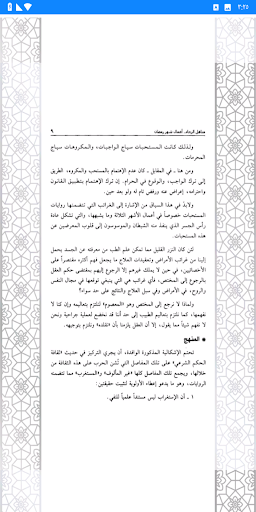 ٣:٢٥
مناهل الرجاء، أعمال شهر رمضان
٩
ولذلك كانت المستحبات سياج الواجبات، والمكروهات سياج
المحرمات.
ومن هنا ـ في المقابل ـ كان عدم الإهتمام بالمستحب والمكروه، الطريق
إلى ترك الواجب، والوقوع في الحرام. إن ترك الإهتمام بتطبيق القانون
واحترامه، إعراض عنه ورفض تام له ولو بعد حين.
ولابد في هذا السياق من الإشارة إلى الغرائب التي تتضمنها روايات
المستحبات خصوصاً في أعمال الأشهر الثلاثة وما يشبهها، والتي تشكل عادة
رأس الجسر الذي ينفذ منه الشيطان والموسوسون إلى قلوب المعرضين عن
هذه المستحبات.
لكن النزر القليل مما تمكن علم الطب من معرفته عن الجسد يجعل
إلينا من غرائب الأمراض وتعقيدات العلاج ما يجعل فهم أكثره مقتصراً على
الأخصائيين، في حين لا يملك غيرهم إلا الرجوع إليهم بمقتضى حكم العقل
بالرجوع إلى المختص، فأي غرائب هي التي ينبغي توقعها في مجال النفس
والروح، في الأمراض وفي سبل العلاج والنتائج على حد سواء؟
ولماذا لا نرجع إلى المختص وهو «المعصوم» لنلتزم بتعاليمه وإن كنا لا
نفهمها، كما نلتزم بتعاليم الطبيب إلى حد أننا قد نخضع لعملية جراحية ونحن
لا نفهم شيئاً مما يقول، إلا أن العقل يلزمنا بأن «نقلده» ونلتزم بتوجيهه.
● المنهج
تحتم الإشكالية المذكورة الوافدة، أن يجري التركيز في حديث «ثقافة
الحكم الشرعي» على تلك المفاصل التي تُشن الحرب على هذه الثقافة من
خلالها، ويجمع تلك المفاصل كلها «غير المألوف» و«المستغرب» مما تتضمنه
الروايات، وهو ما يدعو إعطاء الأولوية لتثبيت حقيقتين:
١ ـ أن الإستغراب ليس مستنداً علمياً للنفي.